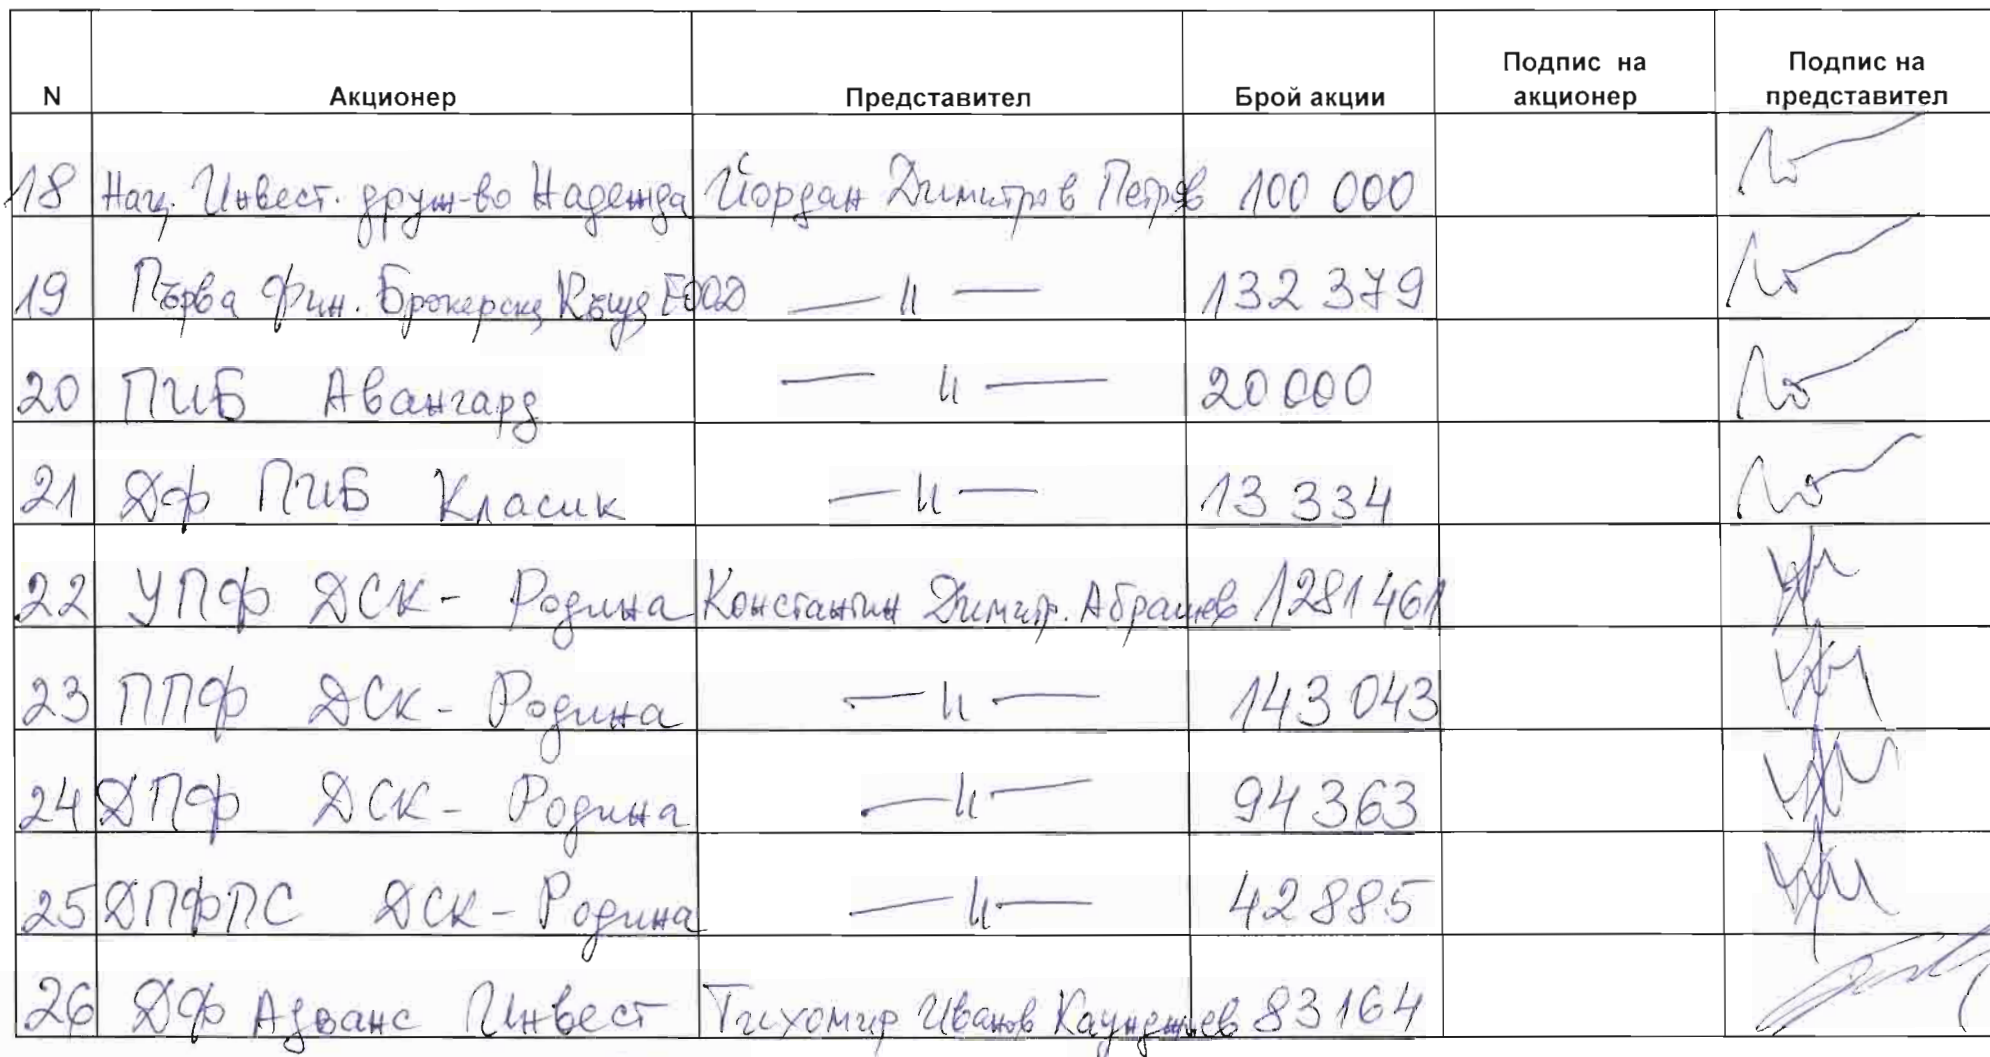 N Акционер Представител Брой акции Подпис на акционер Подпис на представител
18 Нац. Инвест. друж-во Надежда Йордан Димитров Петров 100 000
19 Първа Фин. Брокерска Къща ЕООД — || — 132 379
20 ПИБ Авангард — || — 20 000
21 ДФ ПИБ Класик — || — 13 334
22 УПФ ДСК - Родина Константин Димитр. Абрашев 1281 461
23 ППФ ДСК - Родина — || — 143 043
24 ДПФ ДСК - Родина — || — 94 363
25 ДПФПС ДСК - Родина — || — 42 885
26 ДФ Адванс Инвест Тихомир Иванов Каунджиев 83 164